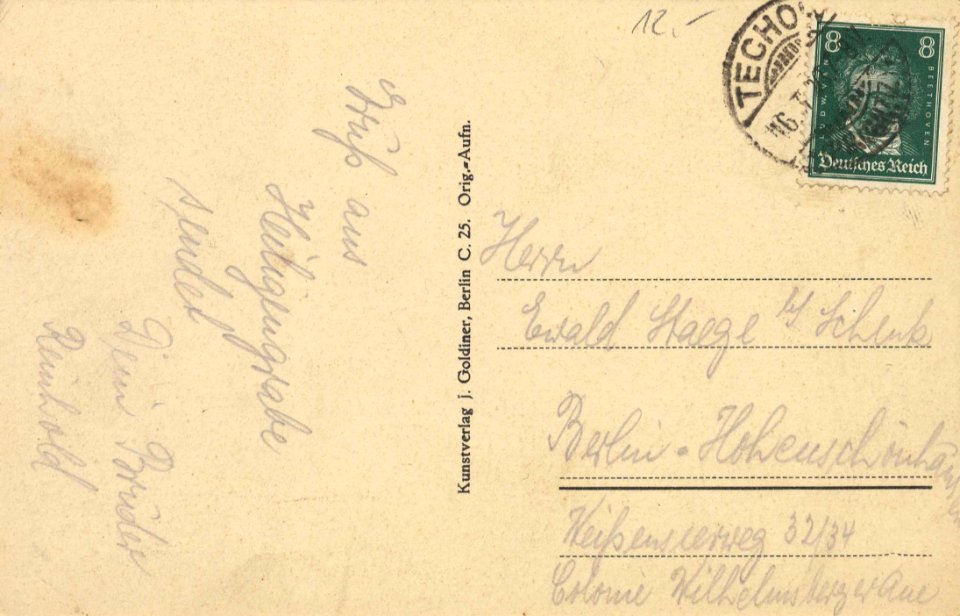 12.-
TECHOW
8 8
BEETHOVEN
Deutsches Reich
Gruß aus
Heiligengrabe
sendet
Dein Bruder
Reinhold
Kunstverlag J. Goldiner, Berlin C. 25. Orig.-Aufn.
Herrn
Ewald Staege Schenk
Berlin-Hohenschönhausen
Weißenseerweg 32/34
Colonie Wilhelmsberger Aue